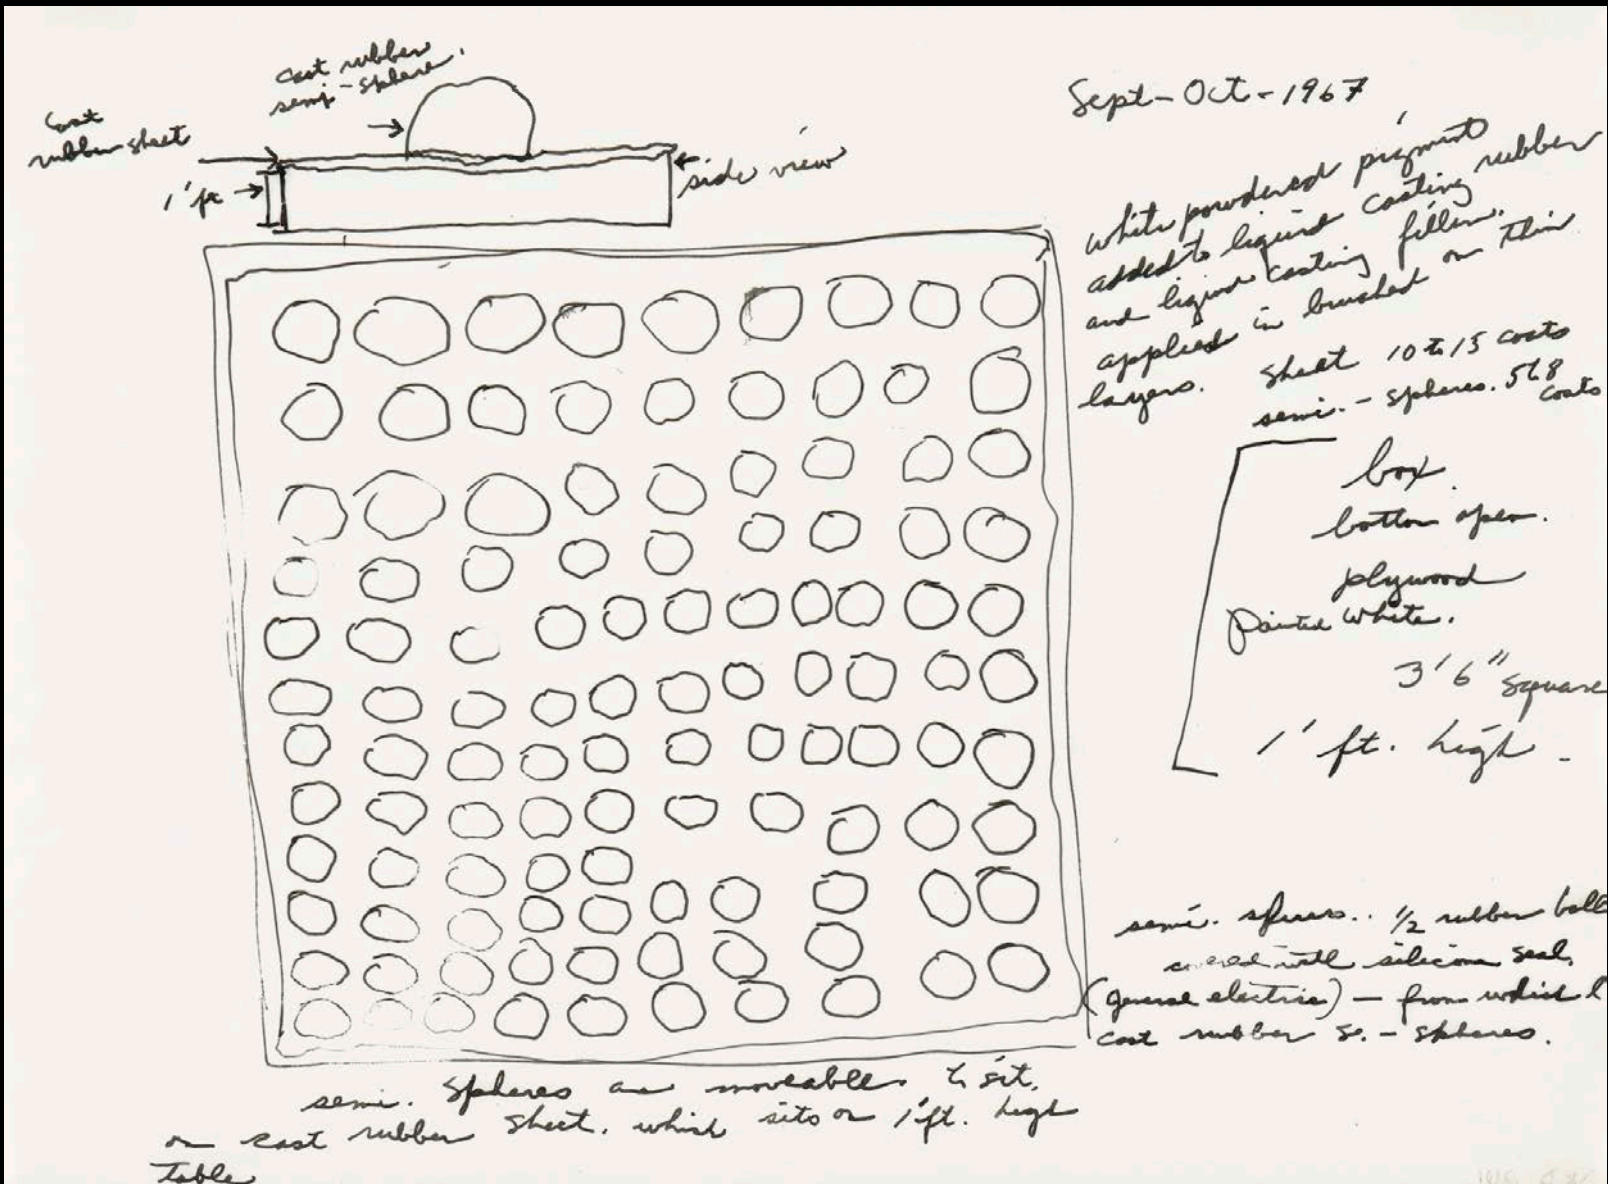 cast rubber
semi-sphere.
cast
rubber sheet
1' ft
side view
Sept-Oct-1967
white powdered pigment
added to liquid casting rubber
and liquid casting filler.
applied in brushed on thin
layers. Sheet 10 to 15 coats
semi.-spheres. 5 to 8
coats
box.
bottom open.
plywood
painted white.
3' 6" square
1' ft. high -
semi. spheres.. 1/2 rubber balls
covered with silicone seal.
(general electric) - from which I
cast rubber se. - spheres.
semi. spheres are moveable. to sit.
on cast rubber sheet. which sits on 1'ft. high
table